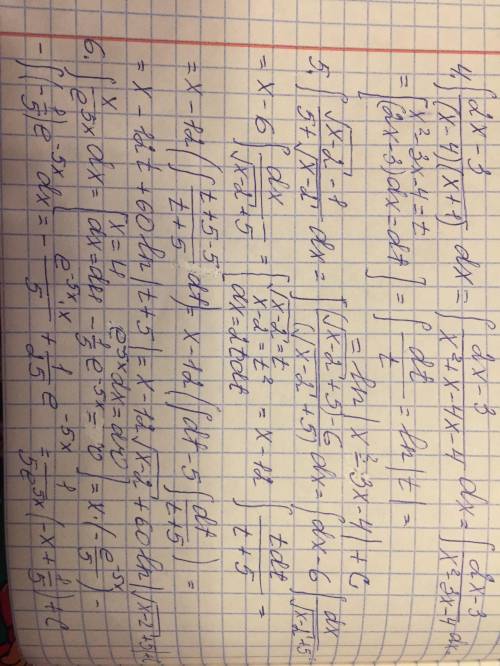 4. ∫ (2x-3)/((x-4)(x+1)) dx = ∫ (2x-3)/(x²+x-4x-4) dx = ∫ (2x-3)/(x²-3x-4) dx
= [x²-3x-4=t (2x-3)dx=dt] = ∫ dt/t = ln|t| =
= ln|x²-3x-4| + C
5. ∫ (√(x-2)-1)/(5+√(x-2)) dx = ∫ ((√(x-2)+5)-6)/(√(x-2)+5) dx = ∫ dx - 6 ∫ dx/(√(x-2)+5)
= x-6 ∫ dx/(√(x-2)+5) = [√(x-2)=t x-2=t² dx=2tdt] = x-12 ∫ tdt/(t+5) =
= x-12 (∫ (t+5-5)/(t+5) dt) = x-12 (∫ dt - 5 ∫ dt/(t+5)) =
= x-12t+60 ln|t+5| = x-12√(x-2)+60 ln|√(x-2)+5|+C
6. ∫ x/e^(5x) dx = [x=u e^(-5x)dx=dv dx=du -1/5 e^(-5x)=v] = x·(-e^(-5x)/5) -
- ∫ (-1/5)e^(-5x) dx = - (e^(-5x)·x)/5 + 1/25 e^(-5x) = 1/(5e^(5x)) (-x+1/5)+C